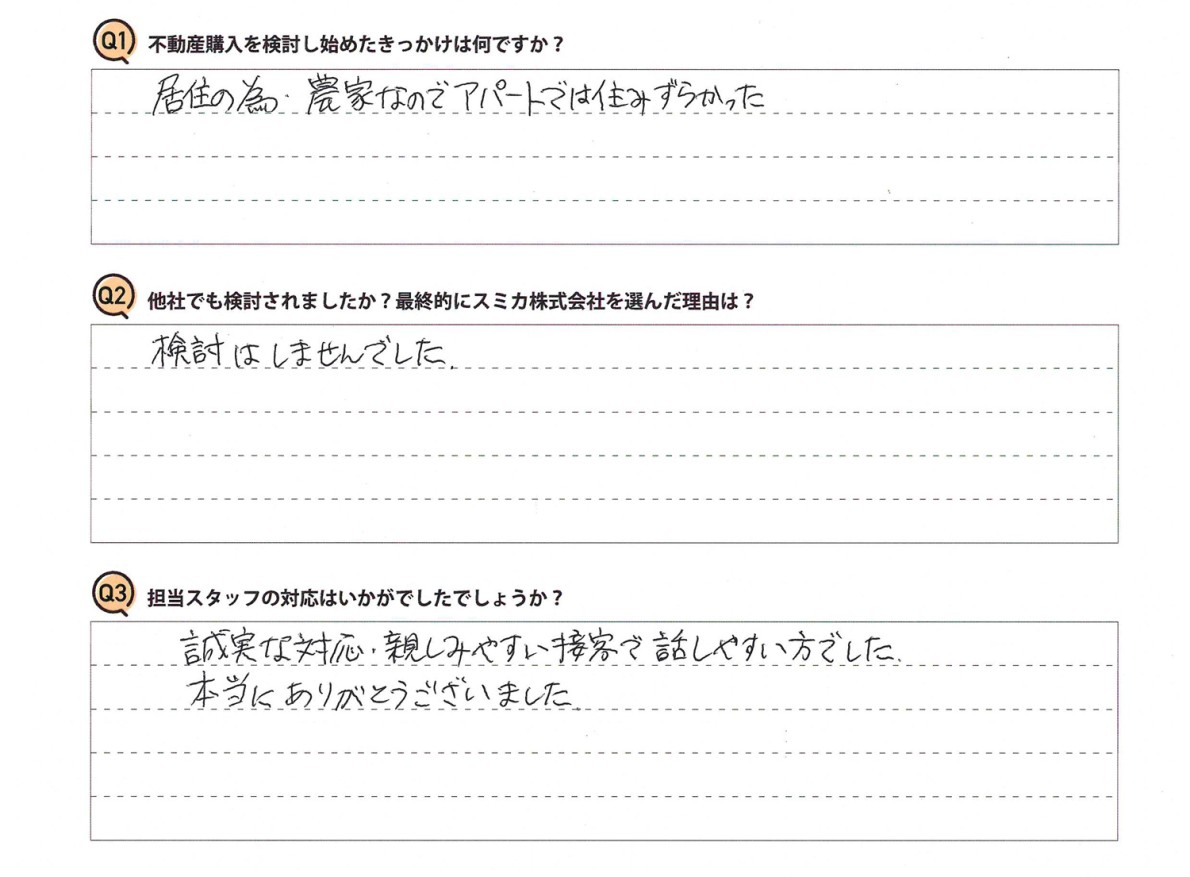 Q1 不動産購入を検討し始めたきっかけは何ですか？
居住の為・農家なのでアパートでは住みずらかった
Q2 他社でも検討されましたか？最終的にスミカ株式会社を選んだ理由は？
検討はしませんでした.
Q3 担当スタッフの対応はいかがでしたでしょうか？
誠実な対応・親しみやすい接客で話しやすい方でした.
本当にありがとうございました.